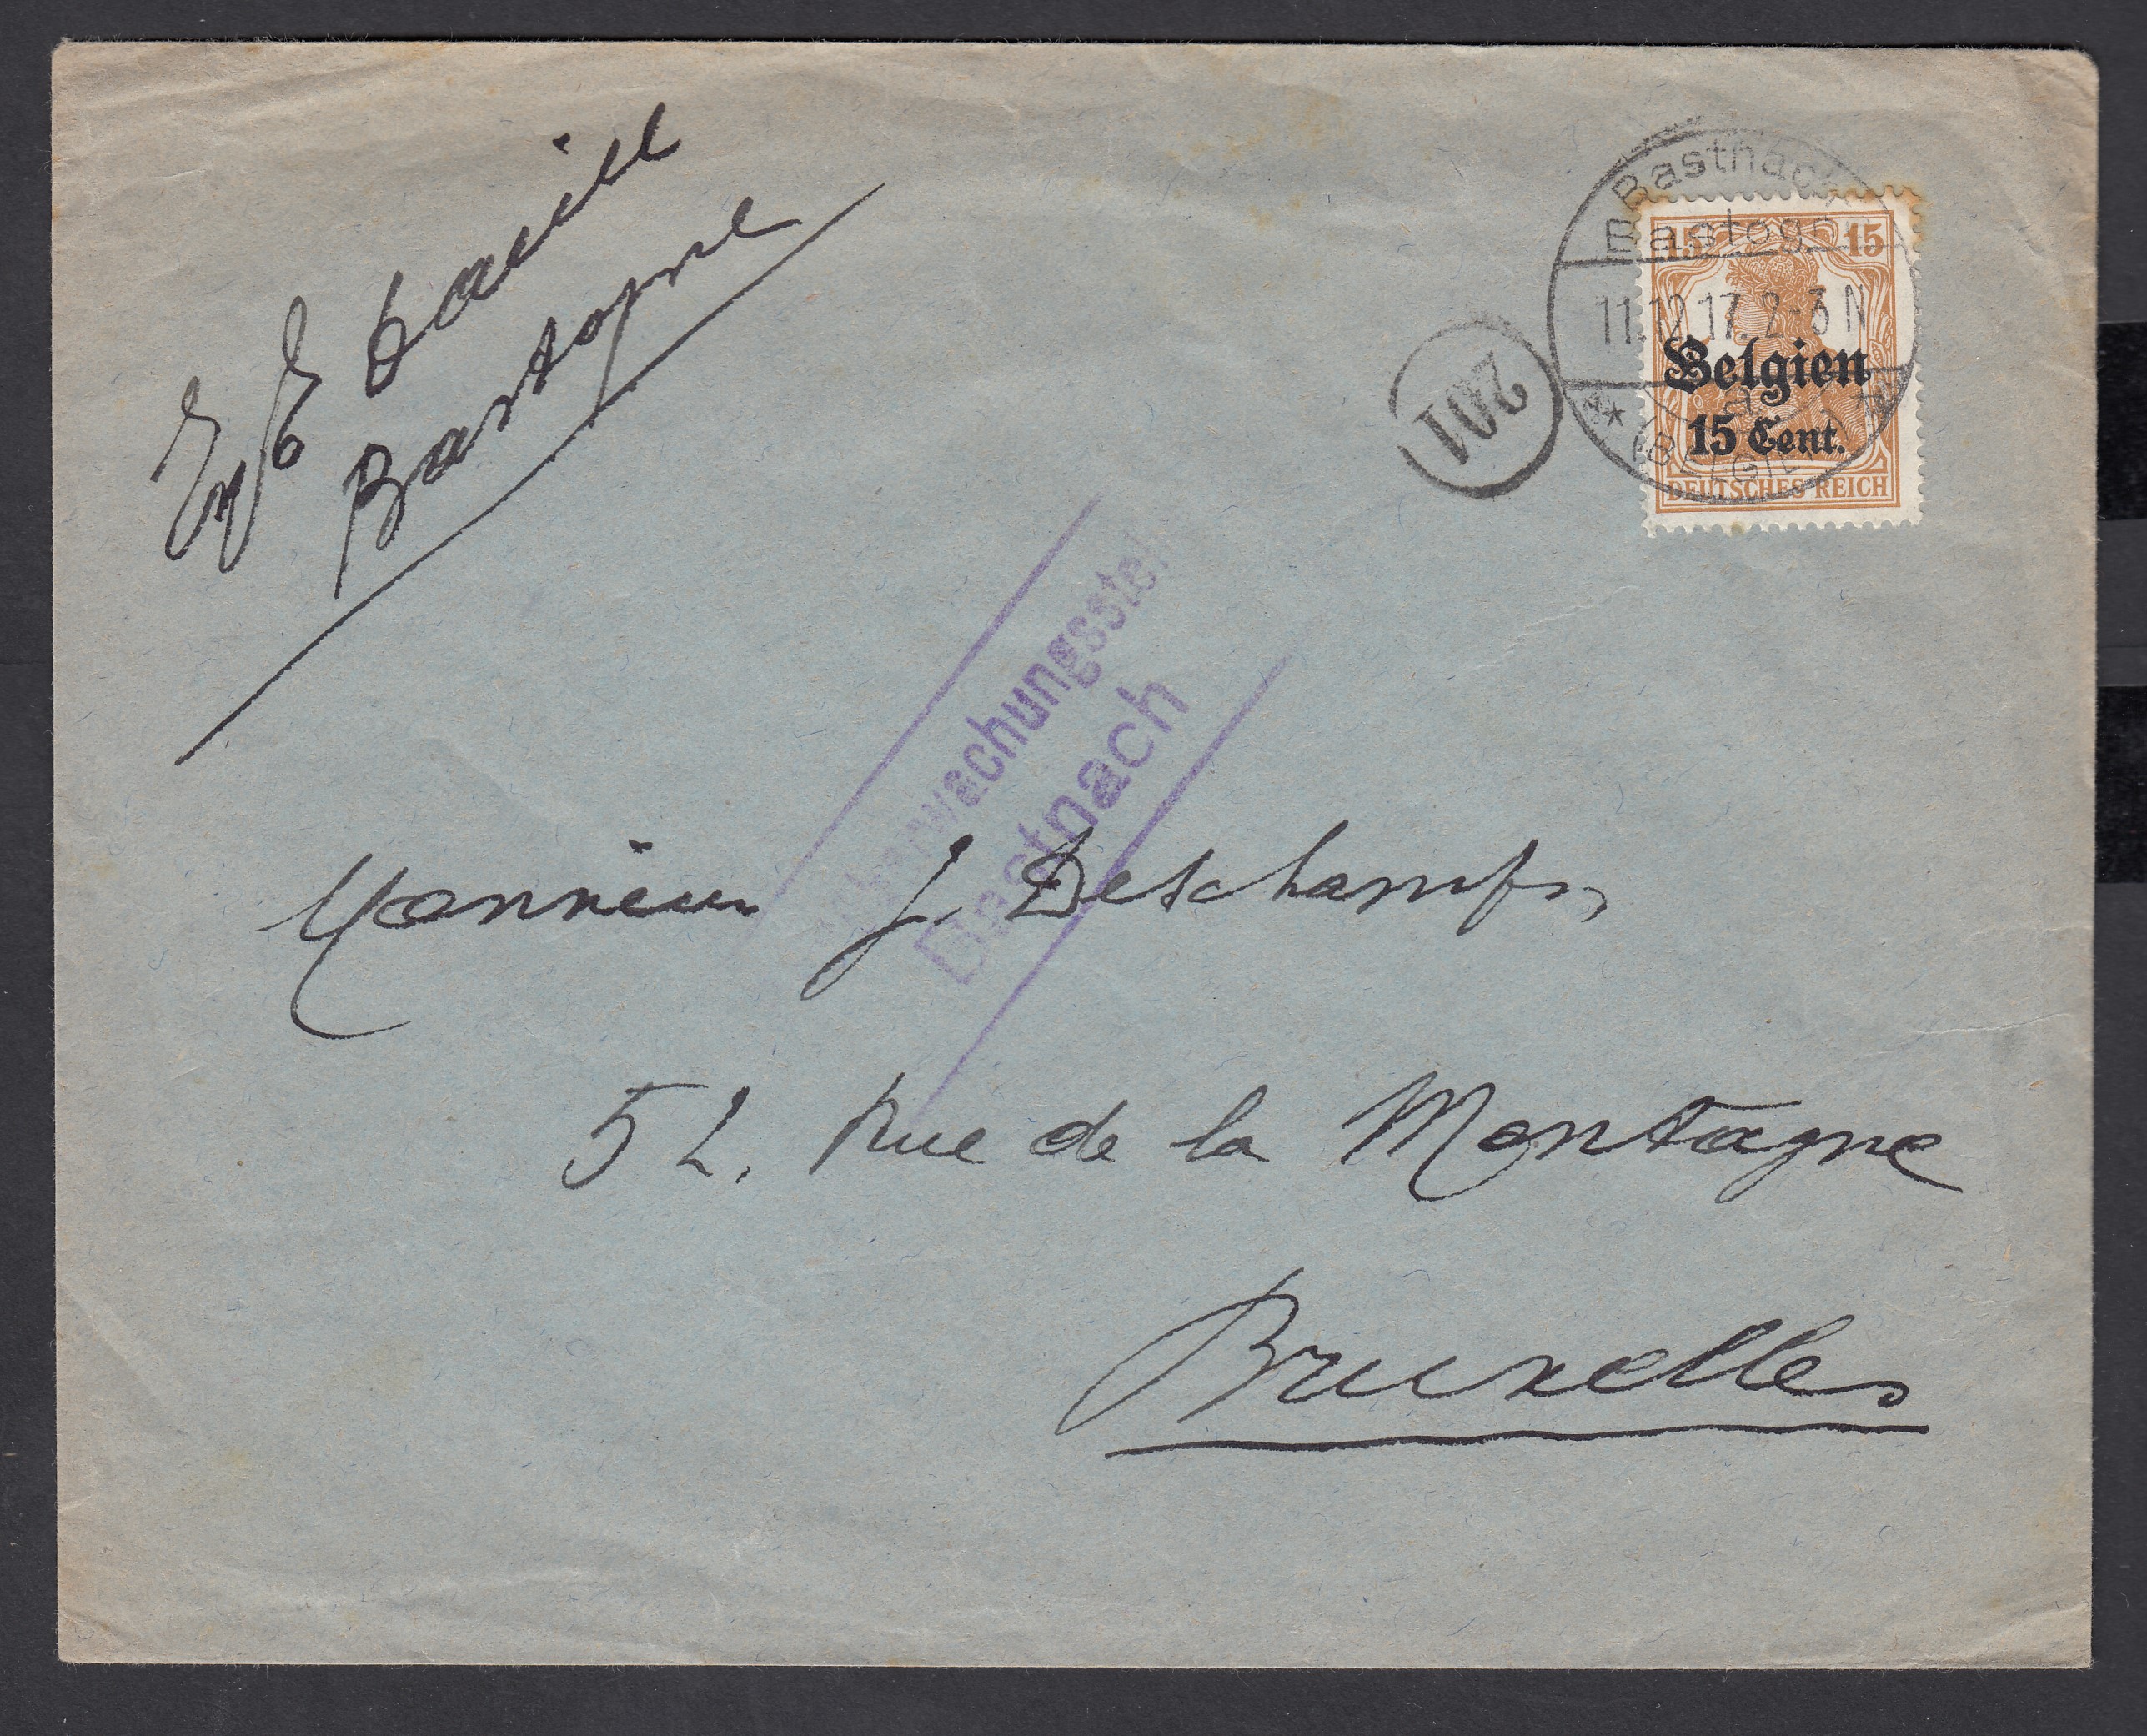 Bastogne
Bastnach
Bastogne
11.12.17.2-3N
(BELGIEN)
15 15
Belgien
15 Cent.
DEUTSCHES REICH
201
Überwachungsstelle
Bastnach
Monsieur J. Deschamps,
52, Rue de la Montagne
Bruxelles